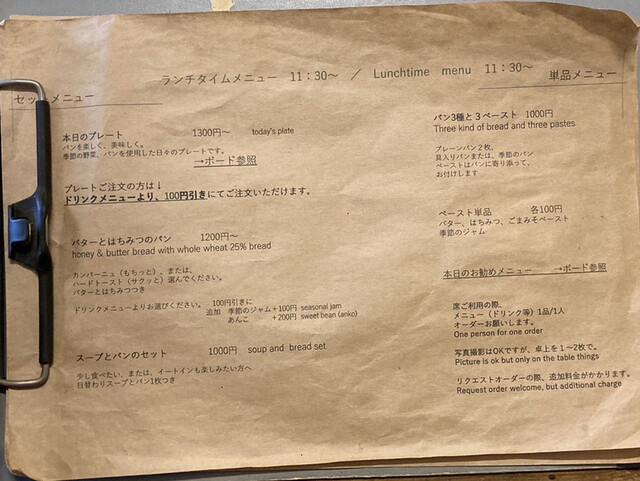 ランチタイムメニュー 11:30～ / Lunchtime menu 11:30～
セットメニュー
本日のプレート 1300円～ today's plate
パンを楽しく、美味しく。
季節の野菜、パンを使用した日々のプレートです。
→ボード参照
プレートご注文の方は↓
ドリンクメニューより、100円引きにてご注文いただけます。
バターとはちみつのパン 1200円～
honey & butter bread with whole wheat 25% bread
カンパーニュ（もちっと）、または、
ハードトースト（サクッと）選んでください。
バターとはちみつつき
ドリンクメニューよりお選びください。 100円引きに
追加 季節のジャム＋100円 seasonal jam
あんこ ＋200円 sweet bean (anko)
スープとパンのセット 1000円 soup and bread set
少し食べたい、または、イートインも楽しみたい方へ
日替わりスープとパン1枚つき
単品メニュー
パン3種と3ペースト 1000円
Three kind of bread and three pastes
プレーンパン2枚、
具入りパンまたは、季節のパン
ペーストはパンに寄り添って、
お付けします
ペースト単品 各100円
バター、はちみつ、ごまみそペースト
季節のジャム
本日のお勧めメニュー →ボード参照
席ご利用の際、
メニュー（ドリンク等）1品/1人
オーダーお願いします。
One person for one order
写真撮影はOKですが、卓上を1～2枚で。
Picture is ok but only on the table things
リクエストオーダーの際、追加料金がかかります。
Request order welcome, but additional charge